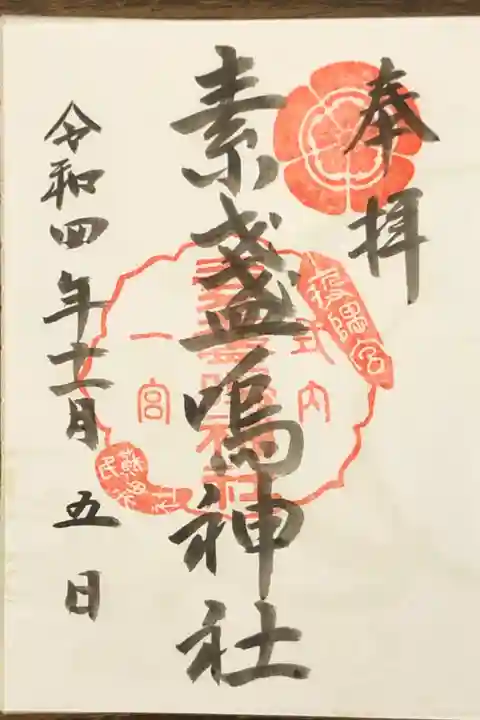 奉拝
素盞嗚神社
令和四年十一月五日
式内
一宮
疫隅宮